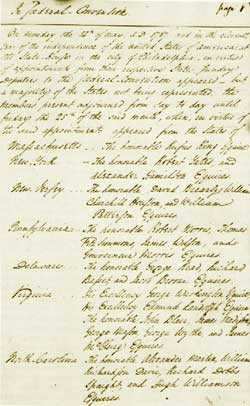 page 1
In federal Convention
On monday the 14th of may. A.D. 1787. and in the eleventh
year of the independence of the united States of america, at
the State-House in the city of Philadelphia, in virtue
of appointments from their respective States, sundry
Deputies to the federal-Convention appeared; but
a majority of the States not being represented, the
members present adjourned from day to day until
friday the 25th of the said month, when, in virtue of
the said appointments appeared from the States of
Massachusetts The honorable Rufus King Esquire.
New-York The honorable Robert Yates and
Alexander Hamilton Esquires.
New-Jersey The honorable David Brearly, William
Churchill Houston, and William
Patterson Esquires
Pennsylvania The honorable Robert Morris, Thomas
Fitzsimmons, James Wilson, and
Gouverneur Morris Esquires.
Delaware The honorable George Read, Richard
Basset and Jacob Broom Esquires
Virginia His Excellency George Washington Esquire
His Excellency Edmund Randolph Esquire
The honorable John Blair, James Madison,
George Mason, George Wythe, and James
McClurg Esquires.
North-Carolina The honorable Alexander Martin, William
Richardson Davie, Richard Dobbs
Spaight, and Hugh Williamson
Esquires